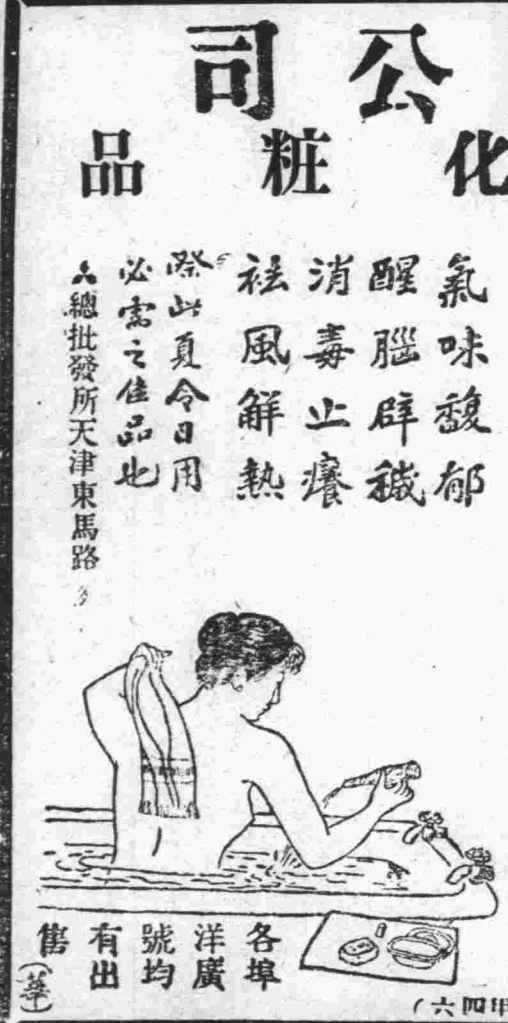 公司
化粧品
氣味馥郁
醒腦辟穢
消毒止癢
祛風解熱
際此夏令日用
必需之佳品也
總批發所天津東馬路
各埠
洋廣
號均
有出
售
(華)
甲四六)